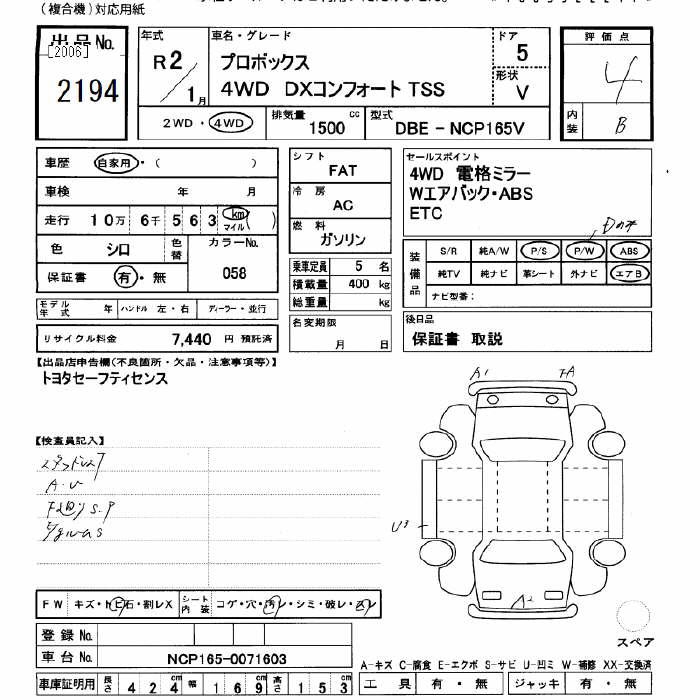 (複合機)対応用紙
出品No.
[2006]
2194
年式
R2/1月
車名・グレード
プロボックス
4WD DXコンフォート TSS
ドア
5
形状
V
評価点
4
内装
B
2WD・4WD
排気量 1500 cc
型式 DBE-NCP165V
車歴 自家用・( )
車検 年 月
走行 10万 6千 5 6 3 km マイル ( )
色 シロ 色替
カラーNo. 058
保証書 有・無
モデル年式 年 ハンドル 左・右 ディーラー・並行
リサイクル料金 7,440 円 預託済
シフト
FAT
冷房
AC
燃料
ガソリン
乗車定員 5 名
積載量 400 kg
総重量 kg
名変期限
月 日
セールスポイント
4WD 電格ミラー
Wエアバック・ABS
ETC
Dのみ
装備品
S/R 純A/W P/S P/W ABS
純TV 純ナビ 革シート 外ナビ エアB
ナビ型番:
後日品
保証書 取説
【出品店申告欄(不良箇所・欠品・注意事項等)】
トヨタセーフティセンス
【検査員記入】
A・U
A1
U3
A2
FW キズ・トビ石・割レX シート内装 コゲ・穴・汚レ・シミ・破レ・スレ
登録No.
車台No. NCP165-0071603
車庫証明用 長さ 4 2 4 cm 幅 1 6 9 cm 高さ 1 5 3 cm
スペア
A-キズ C-腐食 E-エクボ S-サビ U-凹ミ W-補修 XX-交換済
工具 有・無 ジャッキ 有・無